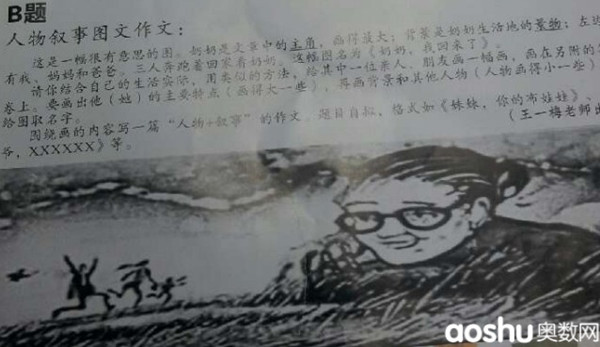 B题
人物叙事图文作文：
这是一幅很有意思的图。奶奶是文章中的主角，画得最大；背景是奶奶生活地的景物；左边
有我、妈妈和爸爸。三人奔跑着回家看奶奶。这幅图名为《奶奶，我回来了》。
请你结合自己的生活实际，用类似的方法，给其中一位亲人、朋友画一幅画，画在另附的
卷上。要画出他（她）的主要特点（画得大一些），再画背景和其他人物（人物画得小一些）
给图取名字。
围绕画的内容写一篇“人物+叙事”的作文，题目自拟，格式如《妹妹，你的布娃娃》、
爷，XXXXXX》等。
（王一梅老师出
aoshu 奥数网